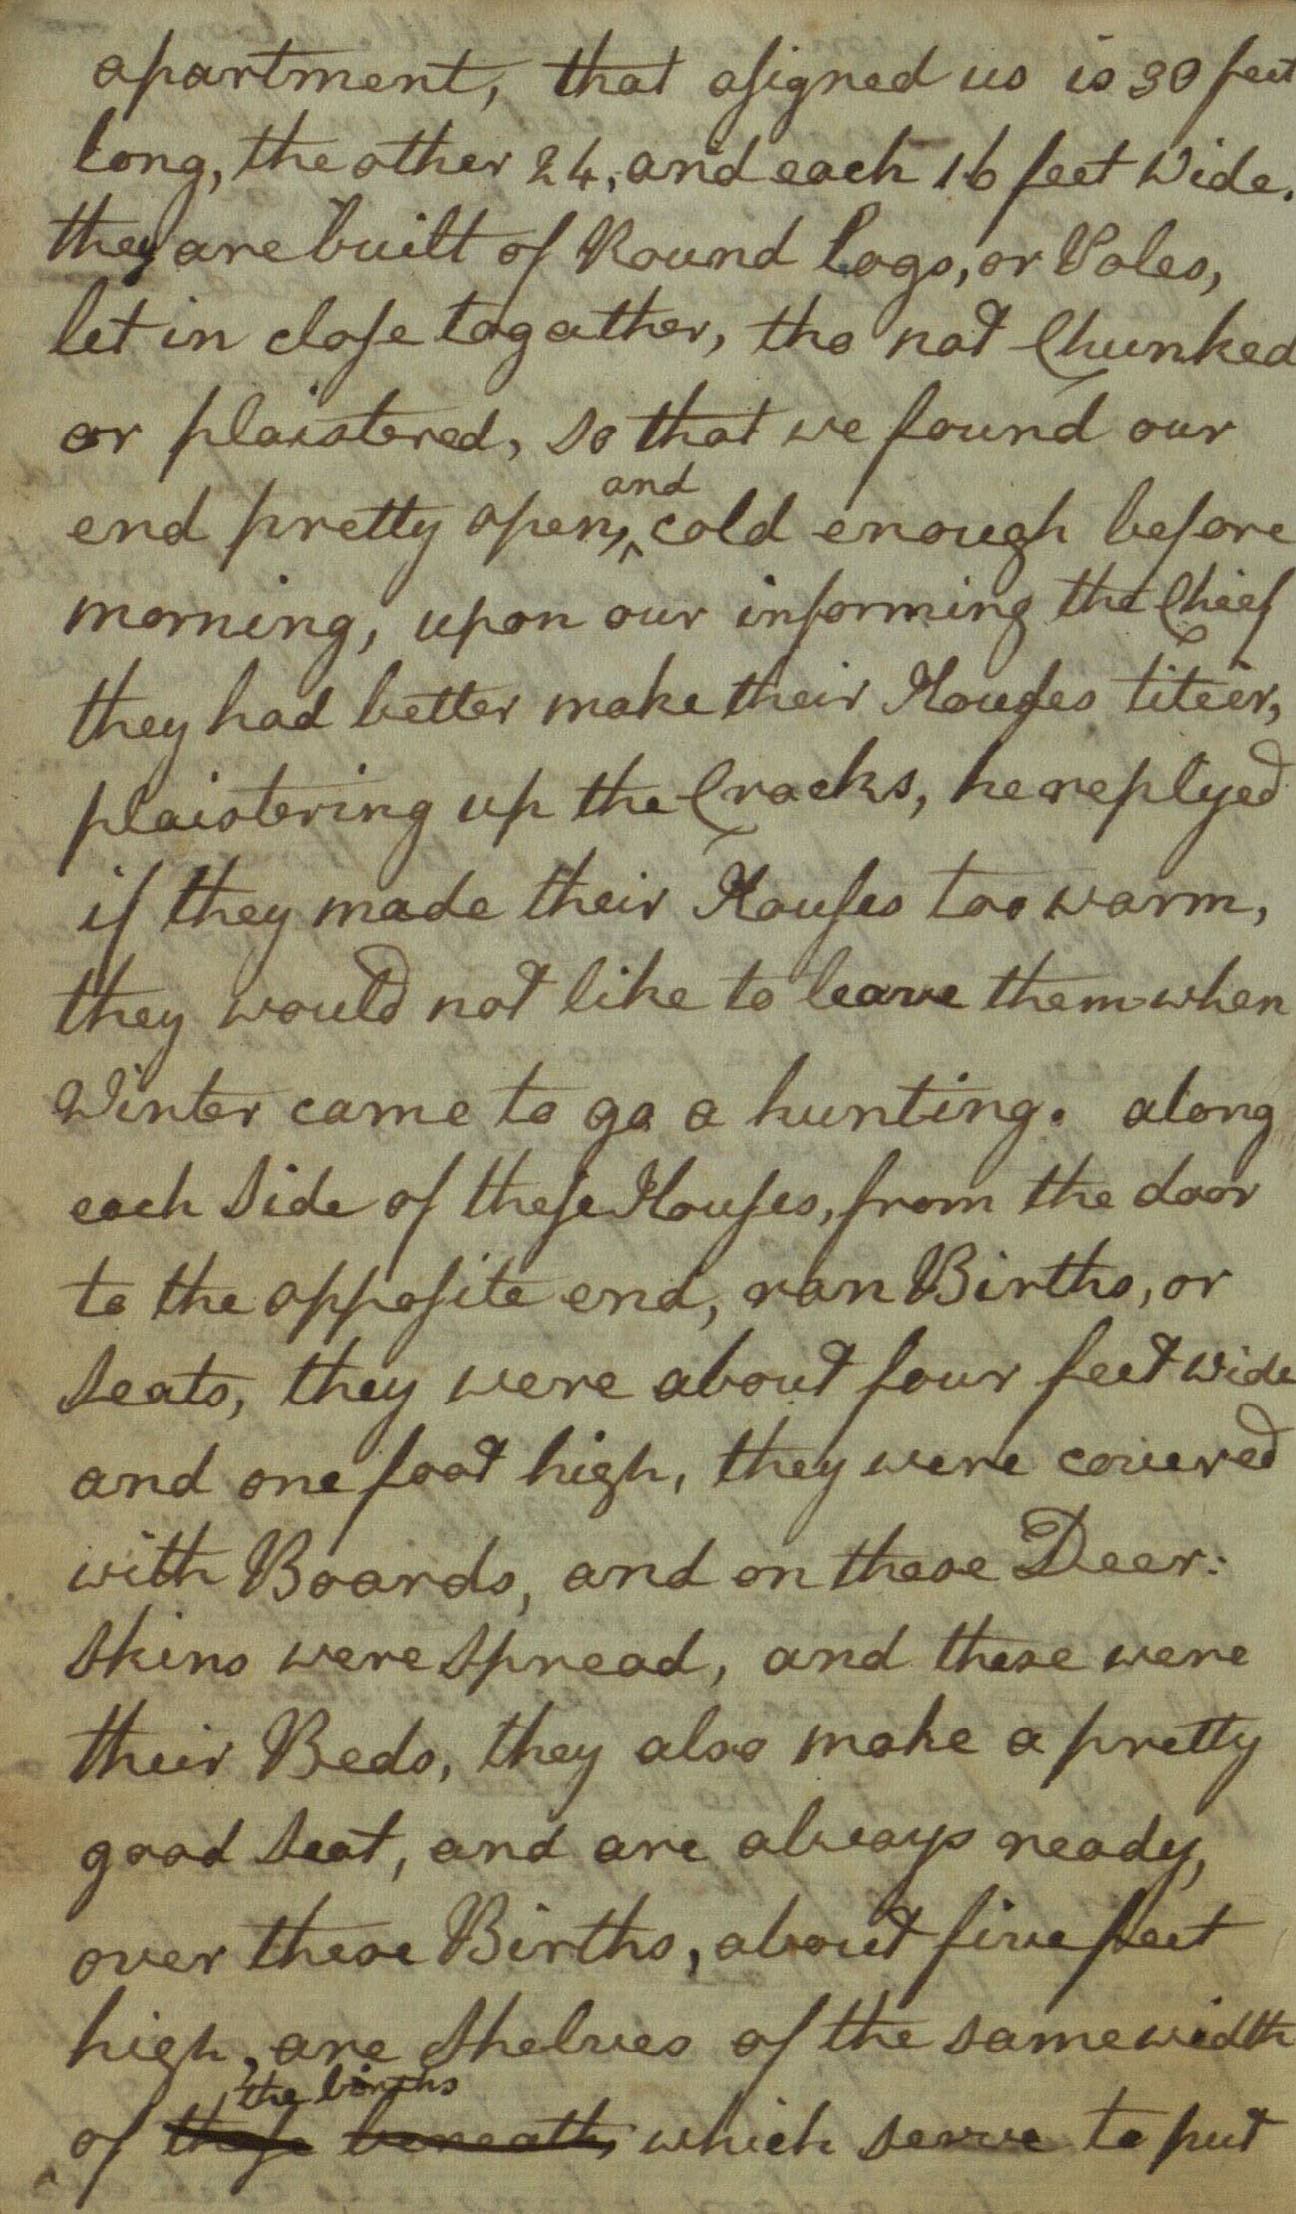 apartment, that aſigned us is 30 feet
long, the other 24, and each 16 feet Wide.
they are built of Round Logs, or Poles,
let in cloſe togather, tho not Chunked
or plaistered, so that we found our
end pretty open, and cold enough before
morning, upon our informing the Chief
they had better make their Houſes titeer,
plaistering up the Cracks, he replyed
if they made their Houſes too warm,
they would not like to leave them when
Winter came to go a hunting. along
each Side of theſe Houſes, from the door
to the oppoſite end, ran Births, or
Seats, they were about four feet wide
and one foot high, they were covered
with Boards, and on these Deer:
Skins were Spread, and these were
their Beds, they also make a pretty
good Seat, and are always ready,
over these Births, about five feet
high, are Shelves of the same width
the births
of thoſe beneath, which serve to put